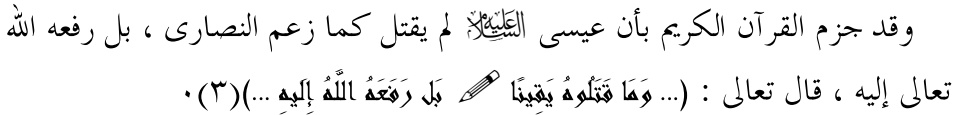 وقد جزم القرآن الكريم بأن عيسى عليه السلام لم يقتل كما زعم النصارى ، بل رفعه الله
تعالى إليه ، قال تعالى : (... وَمَا قَتَلُوهُ يَقِينًا ✏ بَل رَفَعَهُ اللَّهُ إِلَيهِ ...)(٣)٠